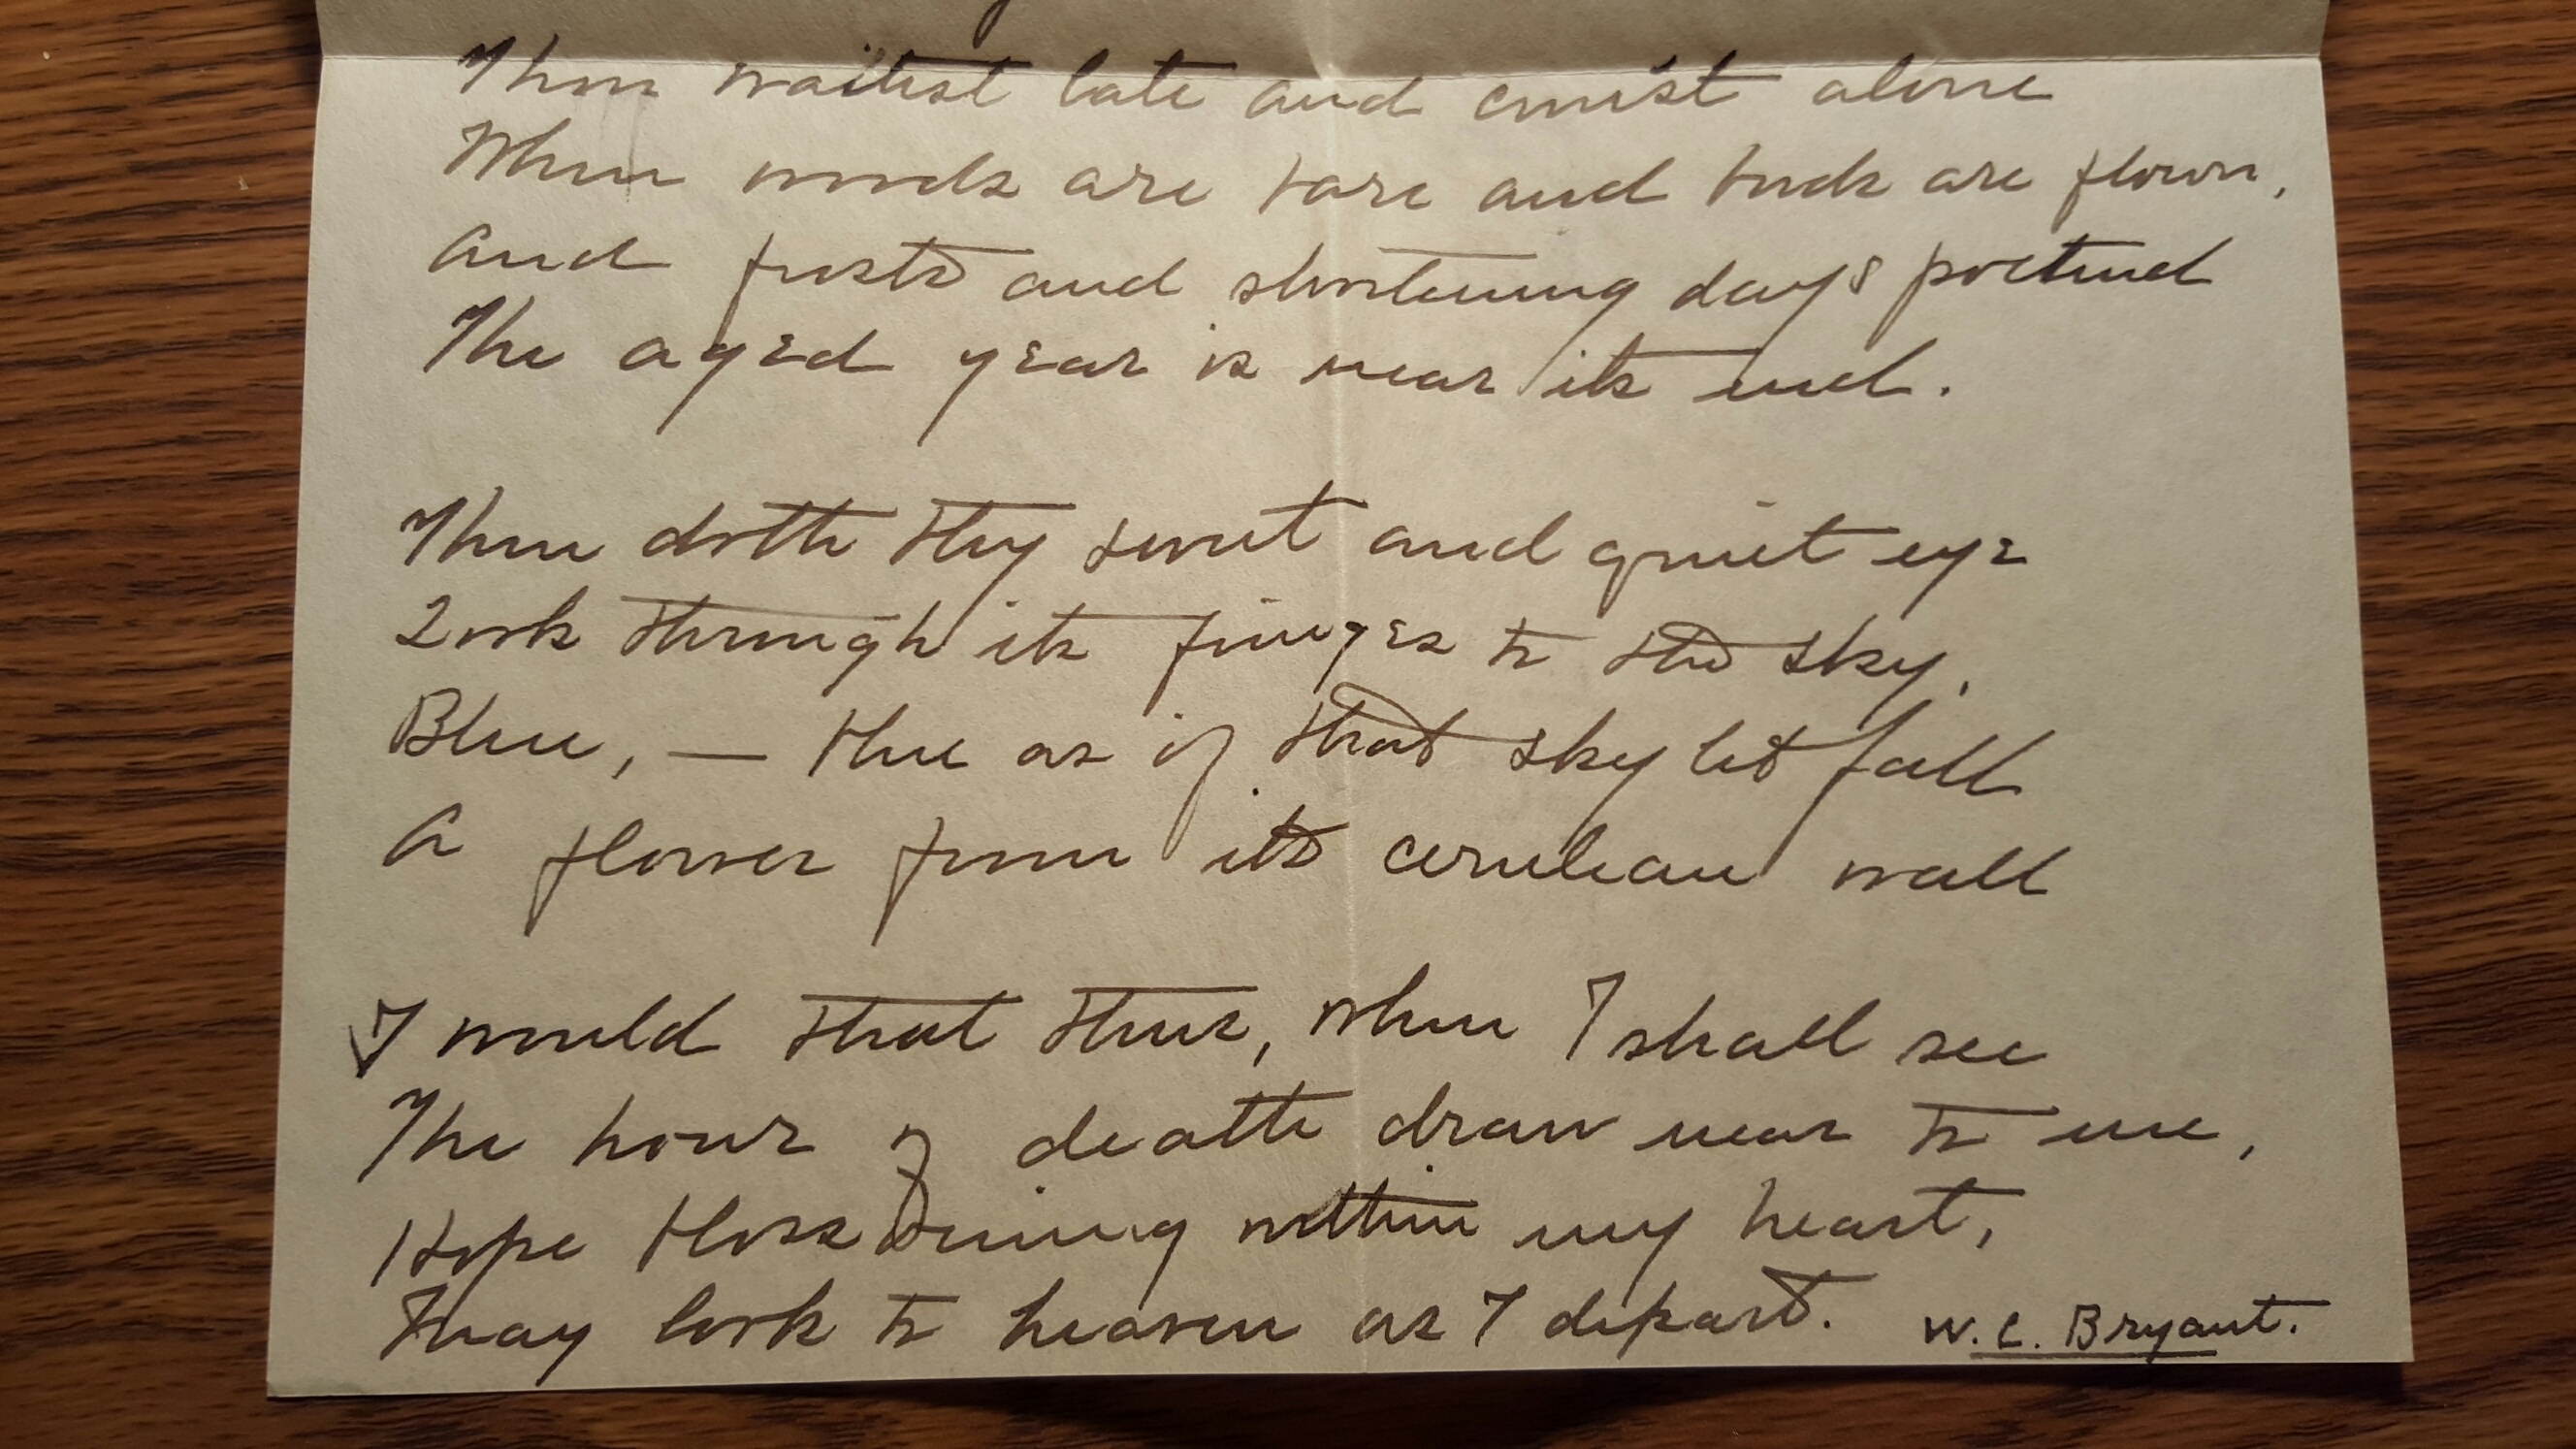 Thou waitest late and com'st alone
When woods are bare and birds are flown,
And frosts and shortening days portend
The aged year is near its end.
Then doth thy sweet and quiet eye
Look through its fringes to the sky,
Blue, — blue as if that sky let fall
A flower from its cerulean wall
I would that thus, when I shall see
The hour of death draw near to me,
Hope blossoming within my heart,
May look to heaven as I depart. W. C. Bryant.